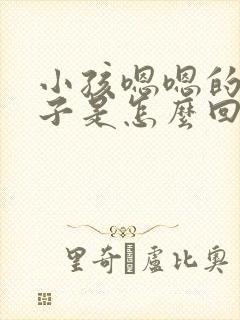 小孩嗯嗯的
子是怎麼回
里奇 盧比奧